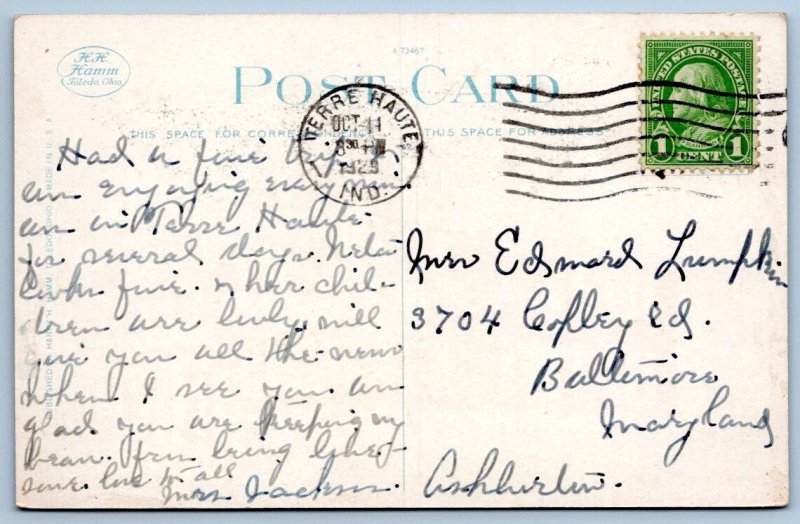 H.H.
Hamm
Toledo, Ohio.
A 73467
POST CARD
THIS SPACE FOR
THIS SPACE FOR ADDRESS
TERRE HAUTE
OCT 11
8 30 PM
1929
IND.
UNITED STATES POSTAGE
1 CENT 1
Had a fine trip
am enjoying every
am in Terre Haute
for several days. Neta
looks fine. & her chil-
dren are lovely. will
give you all the news
when I see you. am
glad you are keeping my
from being
love to all
Mrs Jackson.
Mrs Edward Lumpkin
3704 Copley Rd.
Baltimore
Maryland
Ashburton.
MADE IN U.S.A